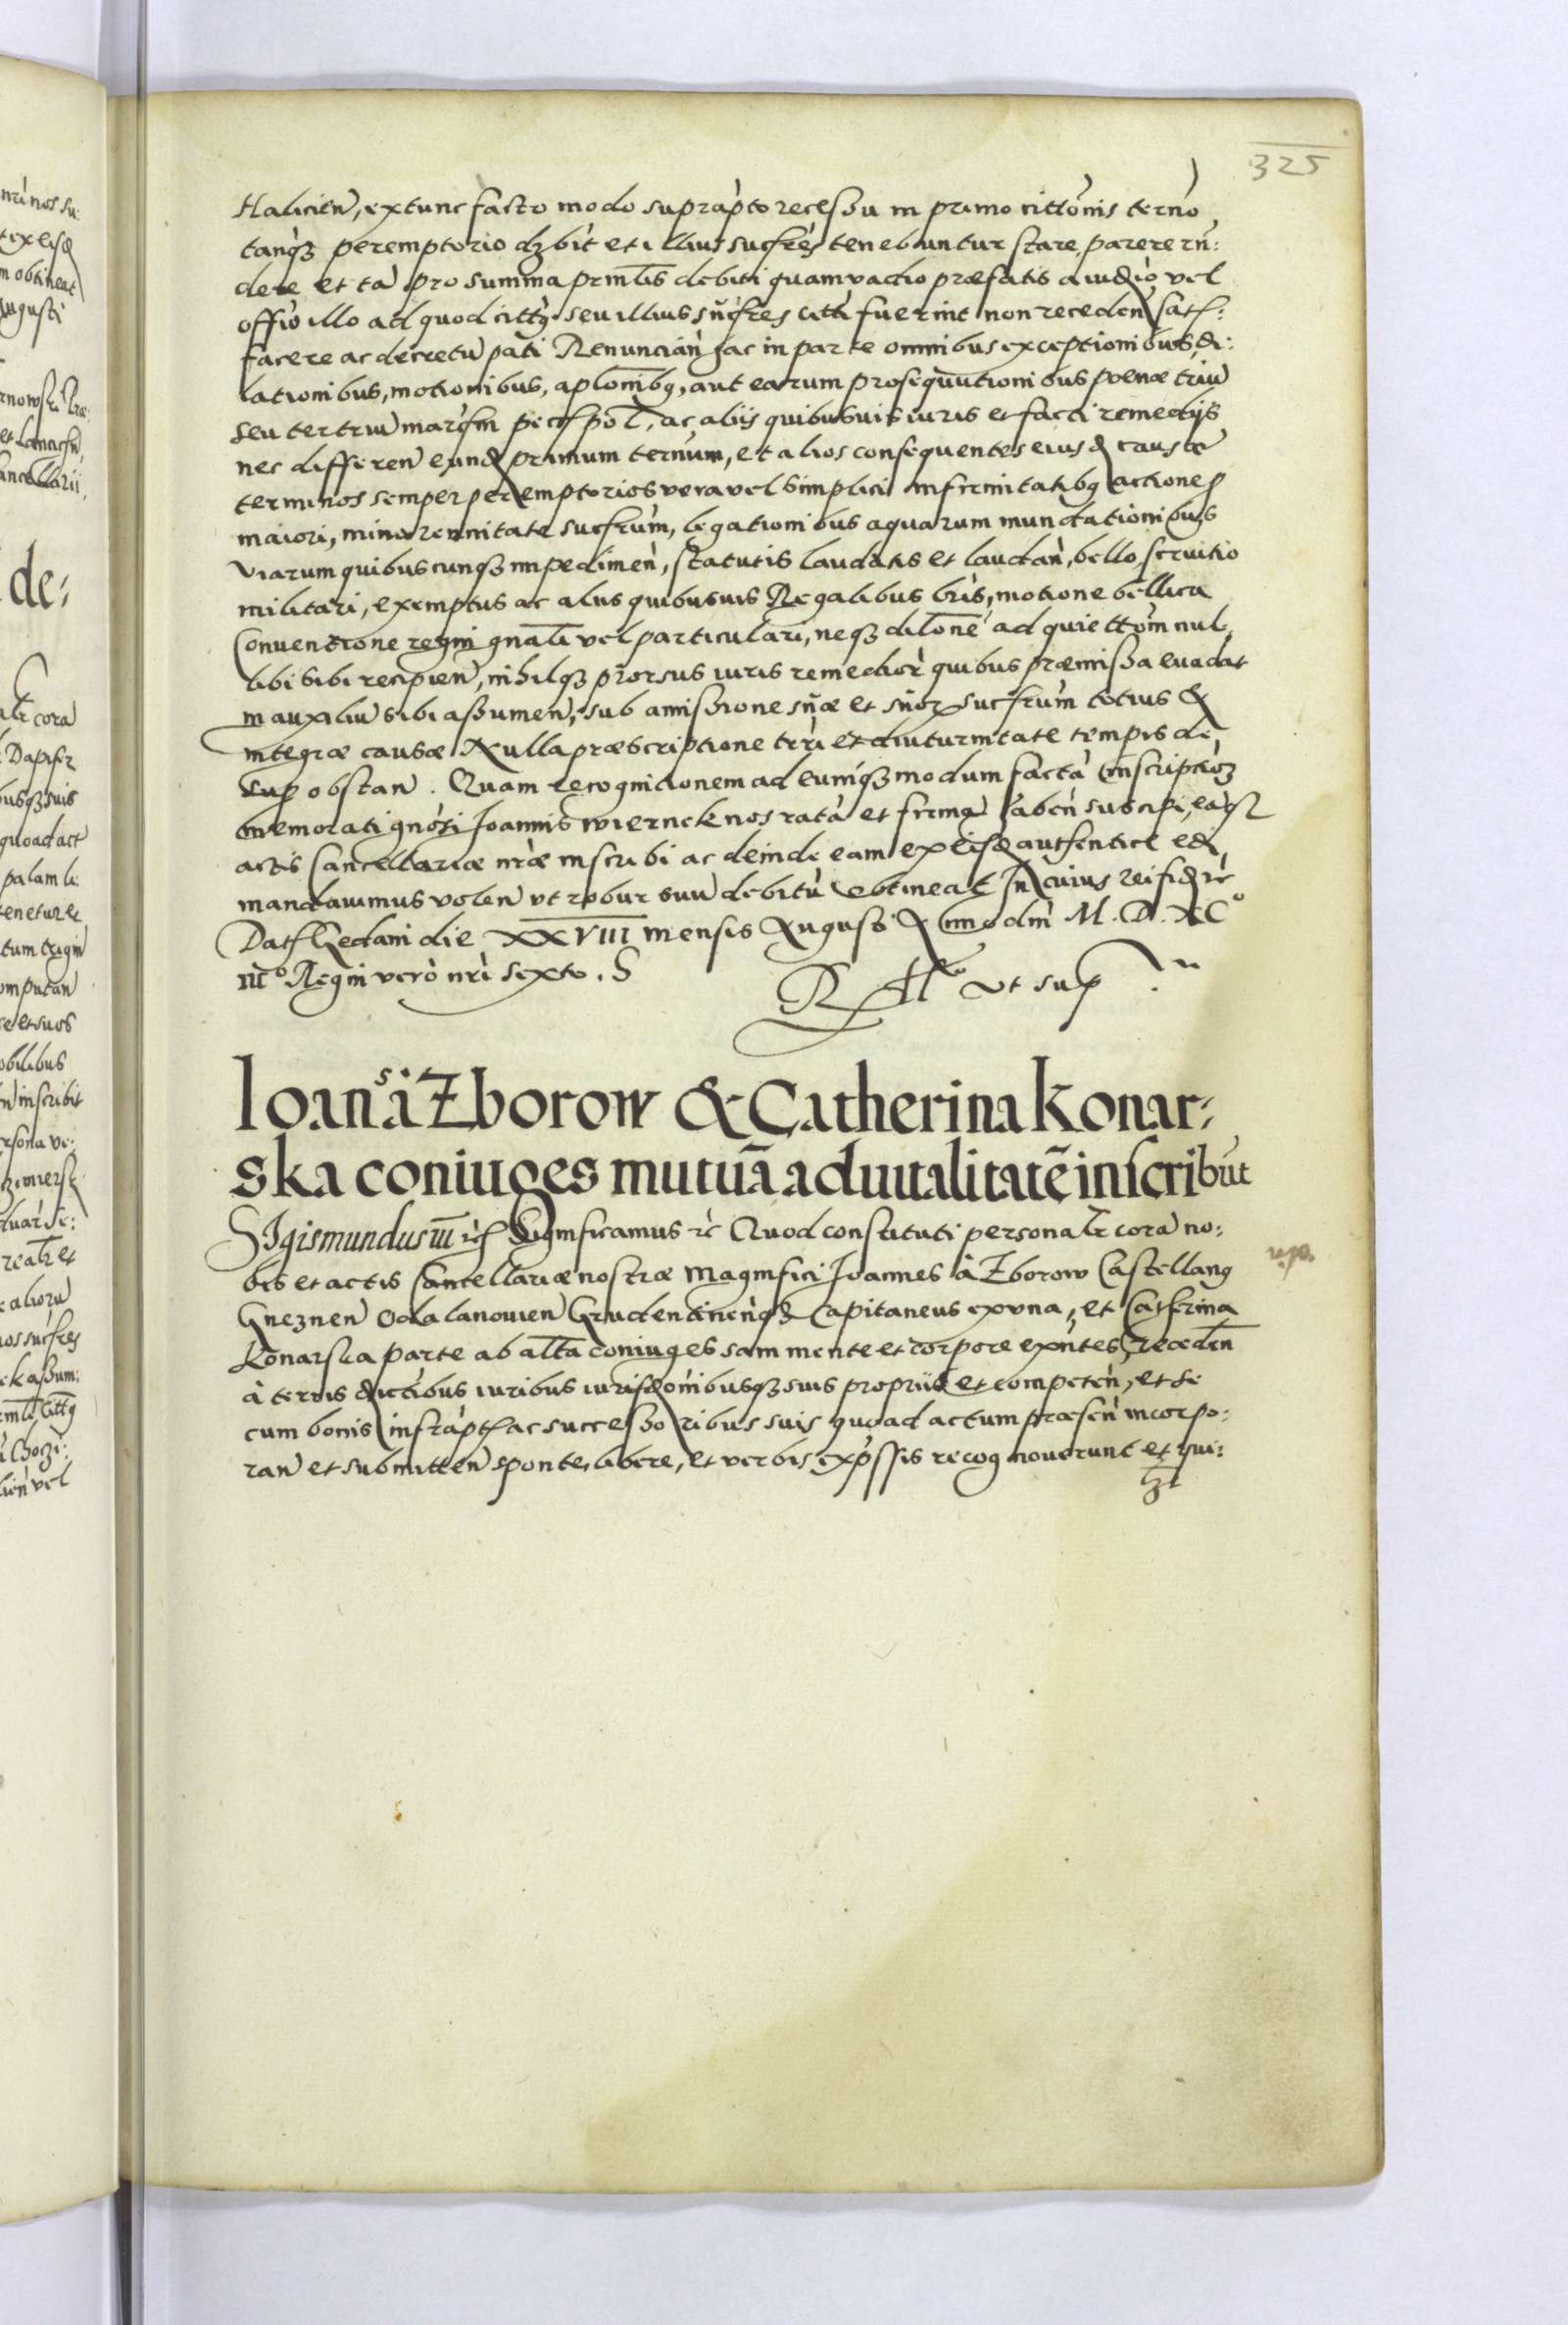 325
Halicien, extunc facto modo suprapto recessu in primo cittonis terno
tanqz peremptorio dzbit et illius succres tenebuntur stare, parere rn:
dere et ta pro summa prnlis debiti quam vadio præfatis a iudio vel
offio illo ad quod cittq seu illius sucres citti fuerint non receden satf:
facere ac decretu pati Renuncian hac in parte omnibus exceptionibus, di:
lationibus, motionibus, aplonibq, aut earum prosequutionibus poenæ triu
seu tertiu marcm pec pol, ac aliis quibusuis iuris et facti remediis
nec differen eund primum ternum, et alios consequentes eiusd causæ
terminos semper peremptorios vera vel simplici infirmitatibq actione
maiori, minorennitate succrum, legationibus aquarum inundationibus
viarum quibuscunqz impedimen, statutis laudatis et laudan, bello seruitio
militari, exemptus ac aliis quibusuis Regalibus lris, motione bellica
Conuentione regni gnali vel particulari, neqz dilone ad quiettom nul
libi sibi recipien, nihilqz prorsus iuris remedior quibus præmissa euadat
in auxiliu sibi assumen, sub amissione snæ et snor succrum totius &
integræ causæ Nulla præscriptione teri et diuturnitate tempis de
sup obstan. Quam recognicionem ad eumqz modum facta Inscriptioz
memorati gnosi Joannis Wiernek nos rata et firma haben suscipi, eaqz
actis Cancellariæ nræ inscribi ac deinde eam ex eisd authentice edi
mandauimus volen vt robur suu debitu obtineat In cuius rei fid rc
Dat Gedani die XXVIII mensis Augusti Anno dni M. D. XCo
IIIo Regni vero nri sexto. S
R Hlo vt sup
Ioans à Zborow & Catherina Konar-
ska coniuges mutuā aduitalitatē inscribūt
SIgismundus III rc Significamus rc Quod constituti personalr cora no:
bis et actis Cancellariæ nostræ Magnifici Joannes à Zborow Castellanq
Gneznen Odalanouien Grudentinenqz Capitaneus ex vna, et Catherina
Konarska parte ab alta coniuges sani mente et corpore exntes, receden
à terris districtibus iuribus iurisdonibusqz suis propriis et competen, et se
cum bonis infrapt ac successoribus suis quoad actum præsen incorpo:
ran et submitten sponte, libere, et verbis expssis recognouerunt et qui: